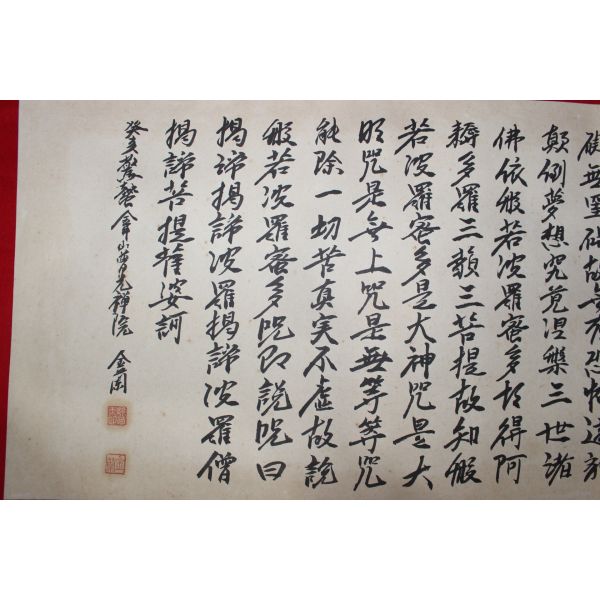 礙無罣碍故無有恐怖遠離
顛倒夢想究竟涅槃三世諸
佛依般若波羅密多故得阿
耨多羅三藐三菩提故知般
若波羅密多是大神咒是大
明咒是無上咒是無等等咒
能除一切苦真実不虛故說
般若波羅密多呪即說呪曰
揭諦揭諦波羅揭諦波羅僧
揭諦菩提薩婆訶
癸亥 山普光禪院 金